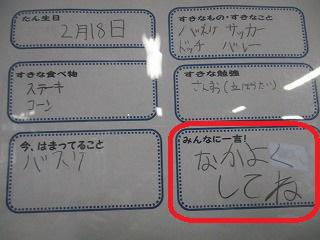 たん生日
2月18日
すきなもの・すきなこと
バスケ サッカー
ドッチ バレー
すきな食べ物
ステーキ
コーン
すきな勉強
さんすう(立体)
今、はまってること
バスケ
みんなに一言!
なかよく
してね